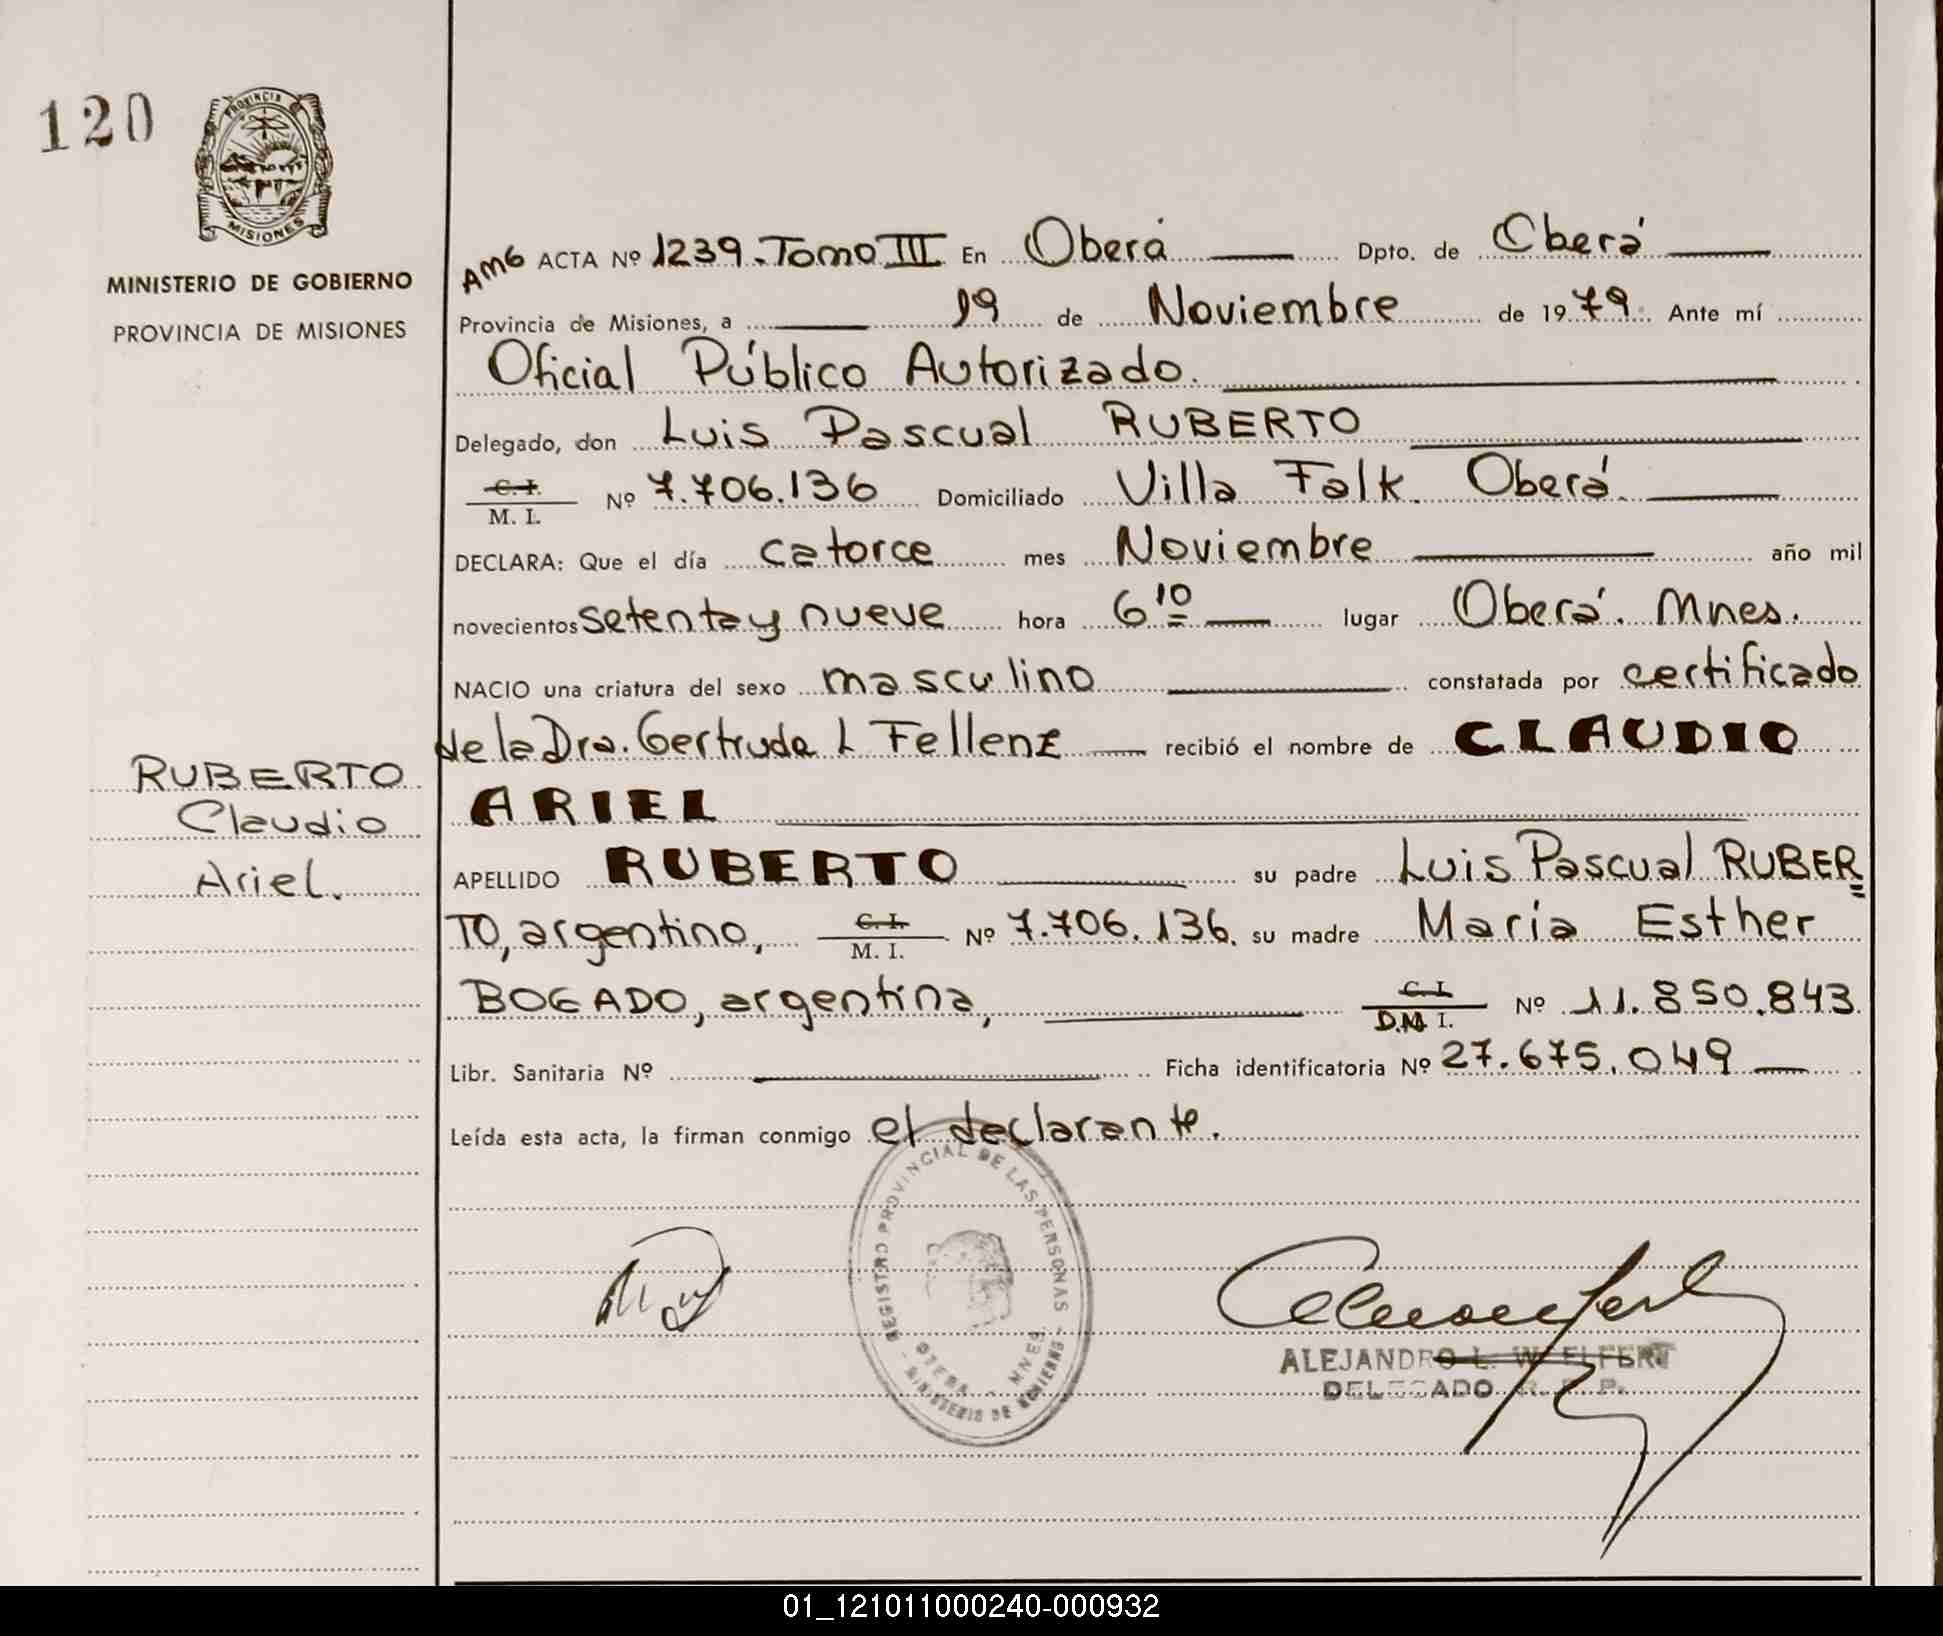 120
PROVINCIA
MISIONES
MINISTERIO DE GOBIERNO
PROVINCIA DE MISIONES
AMG ACTA Nº 1239.-Tomo III En Oberá Dpto. de Oberá
Provincia de Misiones, a 19 de Noviembre de 1979. Ante mí
Oficial Público Autorizado.
Delegado, don Luis Pascual RUBERTO
C. I.
M. I. Nº 7.706.136 Domiciliado Villa Falk. Oberá.
DECLARA: Que el día catorce mes Noviembre año mil
novecientos setenta y nueve hora 6 10 lugar Oberá. Mnes.
NACIO una criatura del sexo masculino constatada por certificado
de la Dra. Gertruda L Fellenz recibió el nombre de CLAUDIO
ARIEL
RUBERTO
Claudio
Ariel.
APELLIDO RUBERTO su padre Luis Pascual RUBER=
TO, argentino, C. I. M. I. Nº 7.706.136. su madre María Esther
BOGADO, argentina, C. I. D.N.I. Nº 11.850.843.
Libr. Sanitaria Nº Ficha identificatoria Nº 27.675.049
Leída esta acta, la firman conmigo el declarante.
REGISTRO PROVINCIAL DE LAS PERSONAS
OBERA - MNES.
MINISTERIO DE GOBIERNO
ALEJANDRO L. WELFERT
DELEGADO R. P. P.
01_121011000240-000932